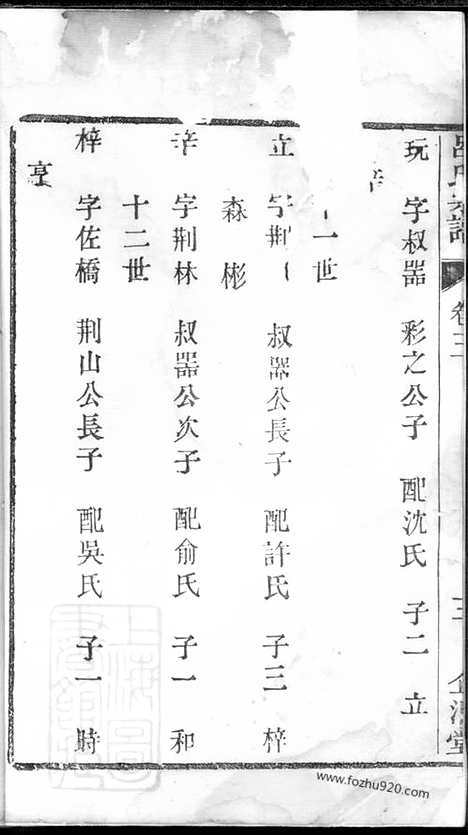 呂氏宗譜 卷三 三
玩 字叔器 彩之公子 配沈氏 子二 立
一世
立 字荆 叔器公長子 配許氏 子三 梓
森 彬
字荆林 叔器公次子 配俞氏 子一 和
十二世
梓 字佐橋 荆山公長子 配吳氏 子一 時
亨
上海圖書館藏
www.fozhu920.com